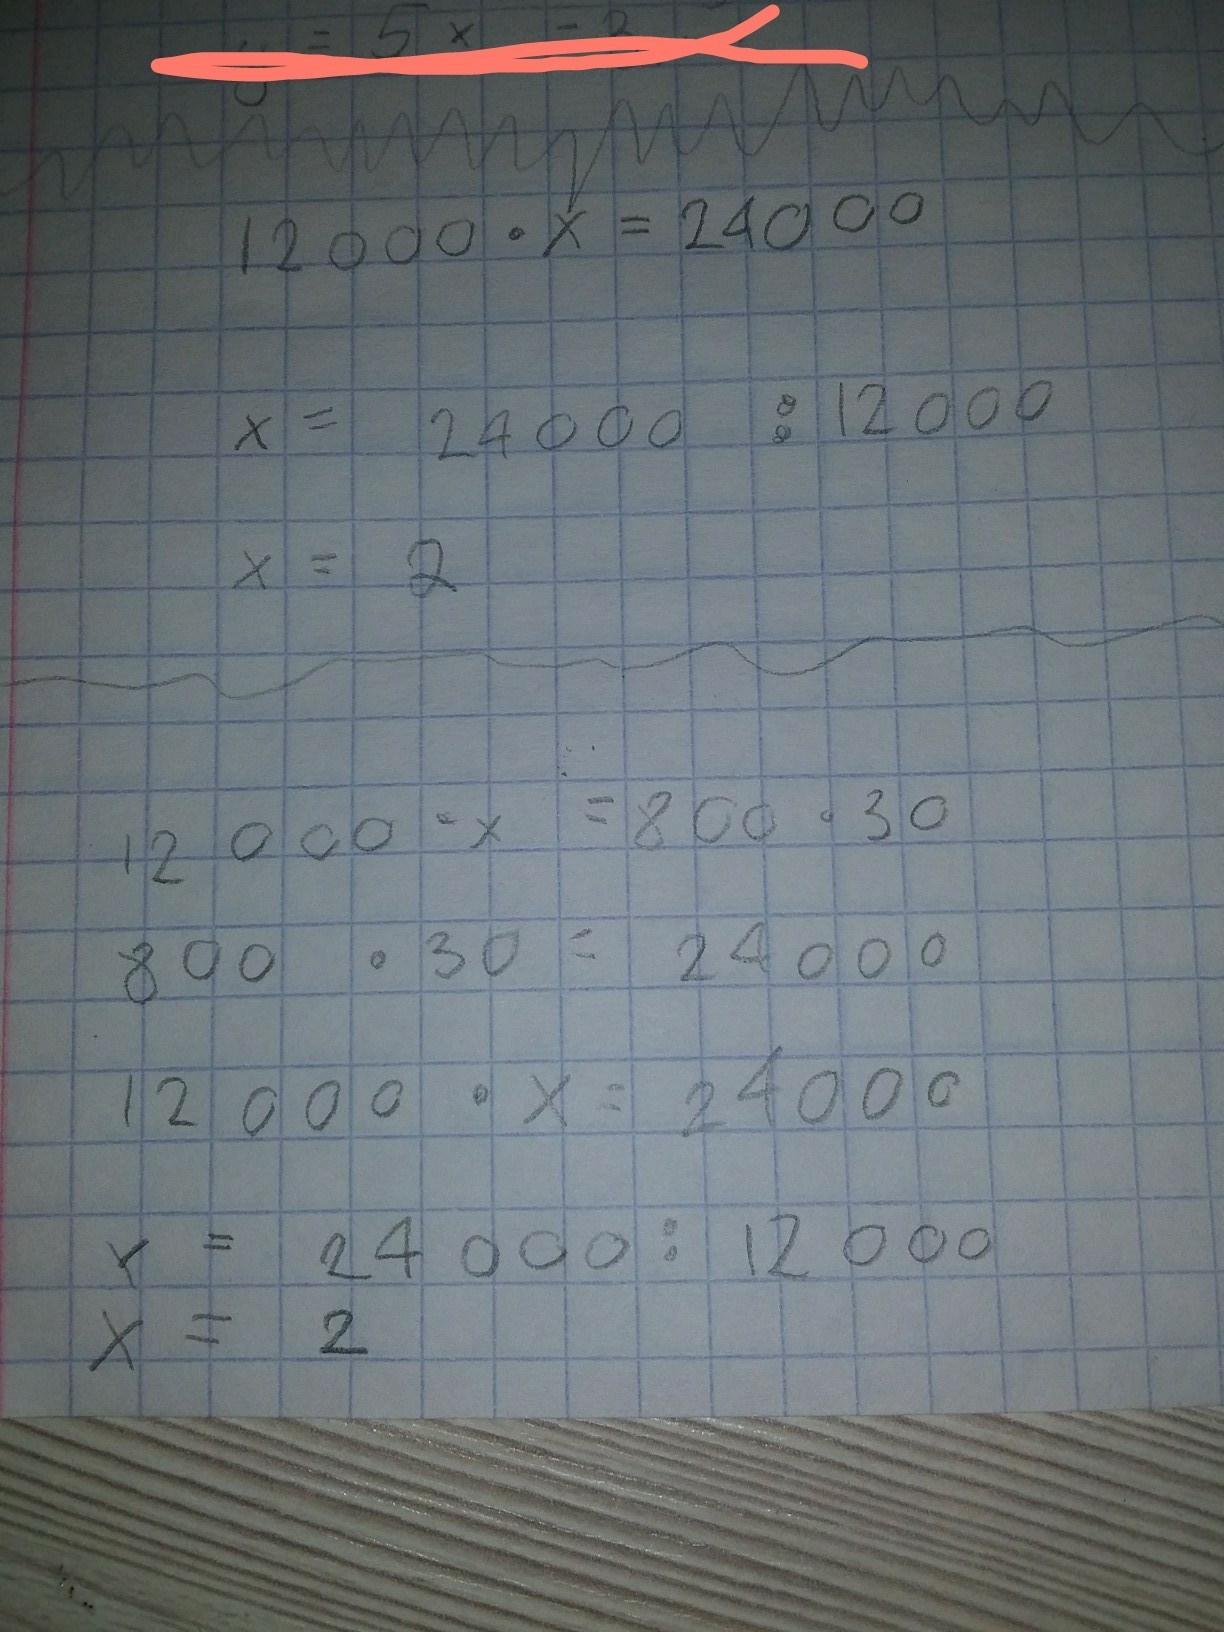 = 5x - 2
12000 · x = 24000
x = 24000 : 12000
x = 2
12 000 · x = 800 · 30
800 · 30 = 24000
12 000 · x = 24000
x = 24 000 : 12 000
x = 2